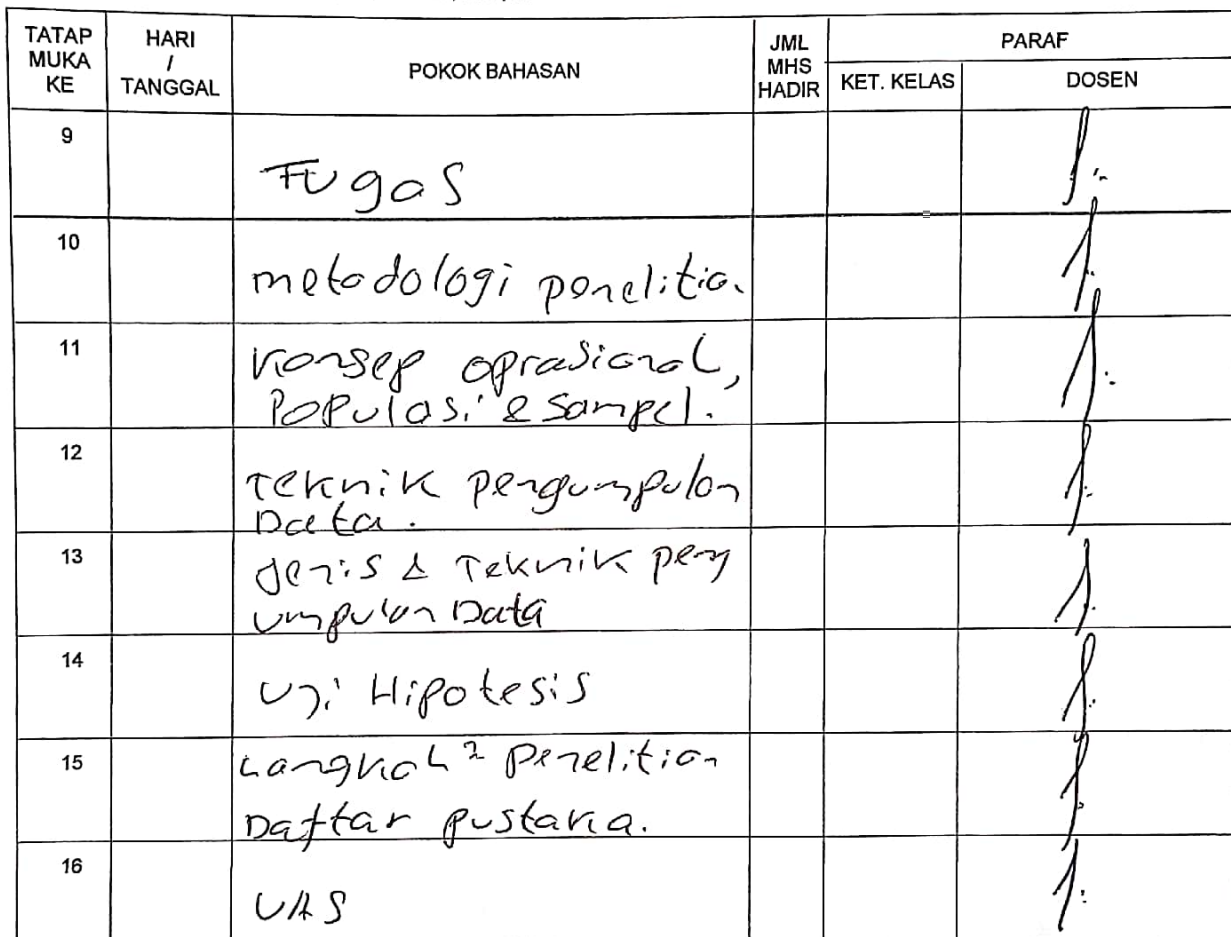 TATAP MUKA KE
HARI / TANGGAL
POKOK BAHASAN
JML MHS HADIR
PARAF
KET. KELAS
DOSEN
9
Tugas
10
metodologi penelitia.
11
Konsep oprasional,
Populasi & Sampel.
12
Teknik pengumpulan
Data.
13
Jenis & Teknik peng
umpulan Data
14
Uji Hipotesis
15
Langkah² penelitian
Daftar pustaka.
16
UAS